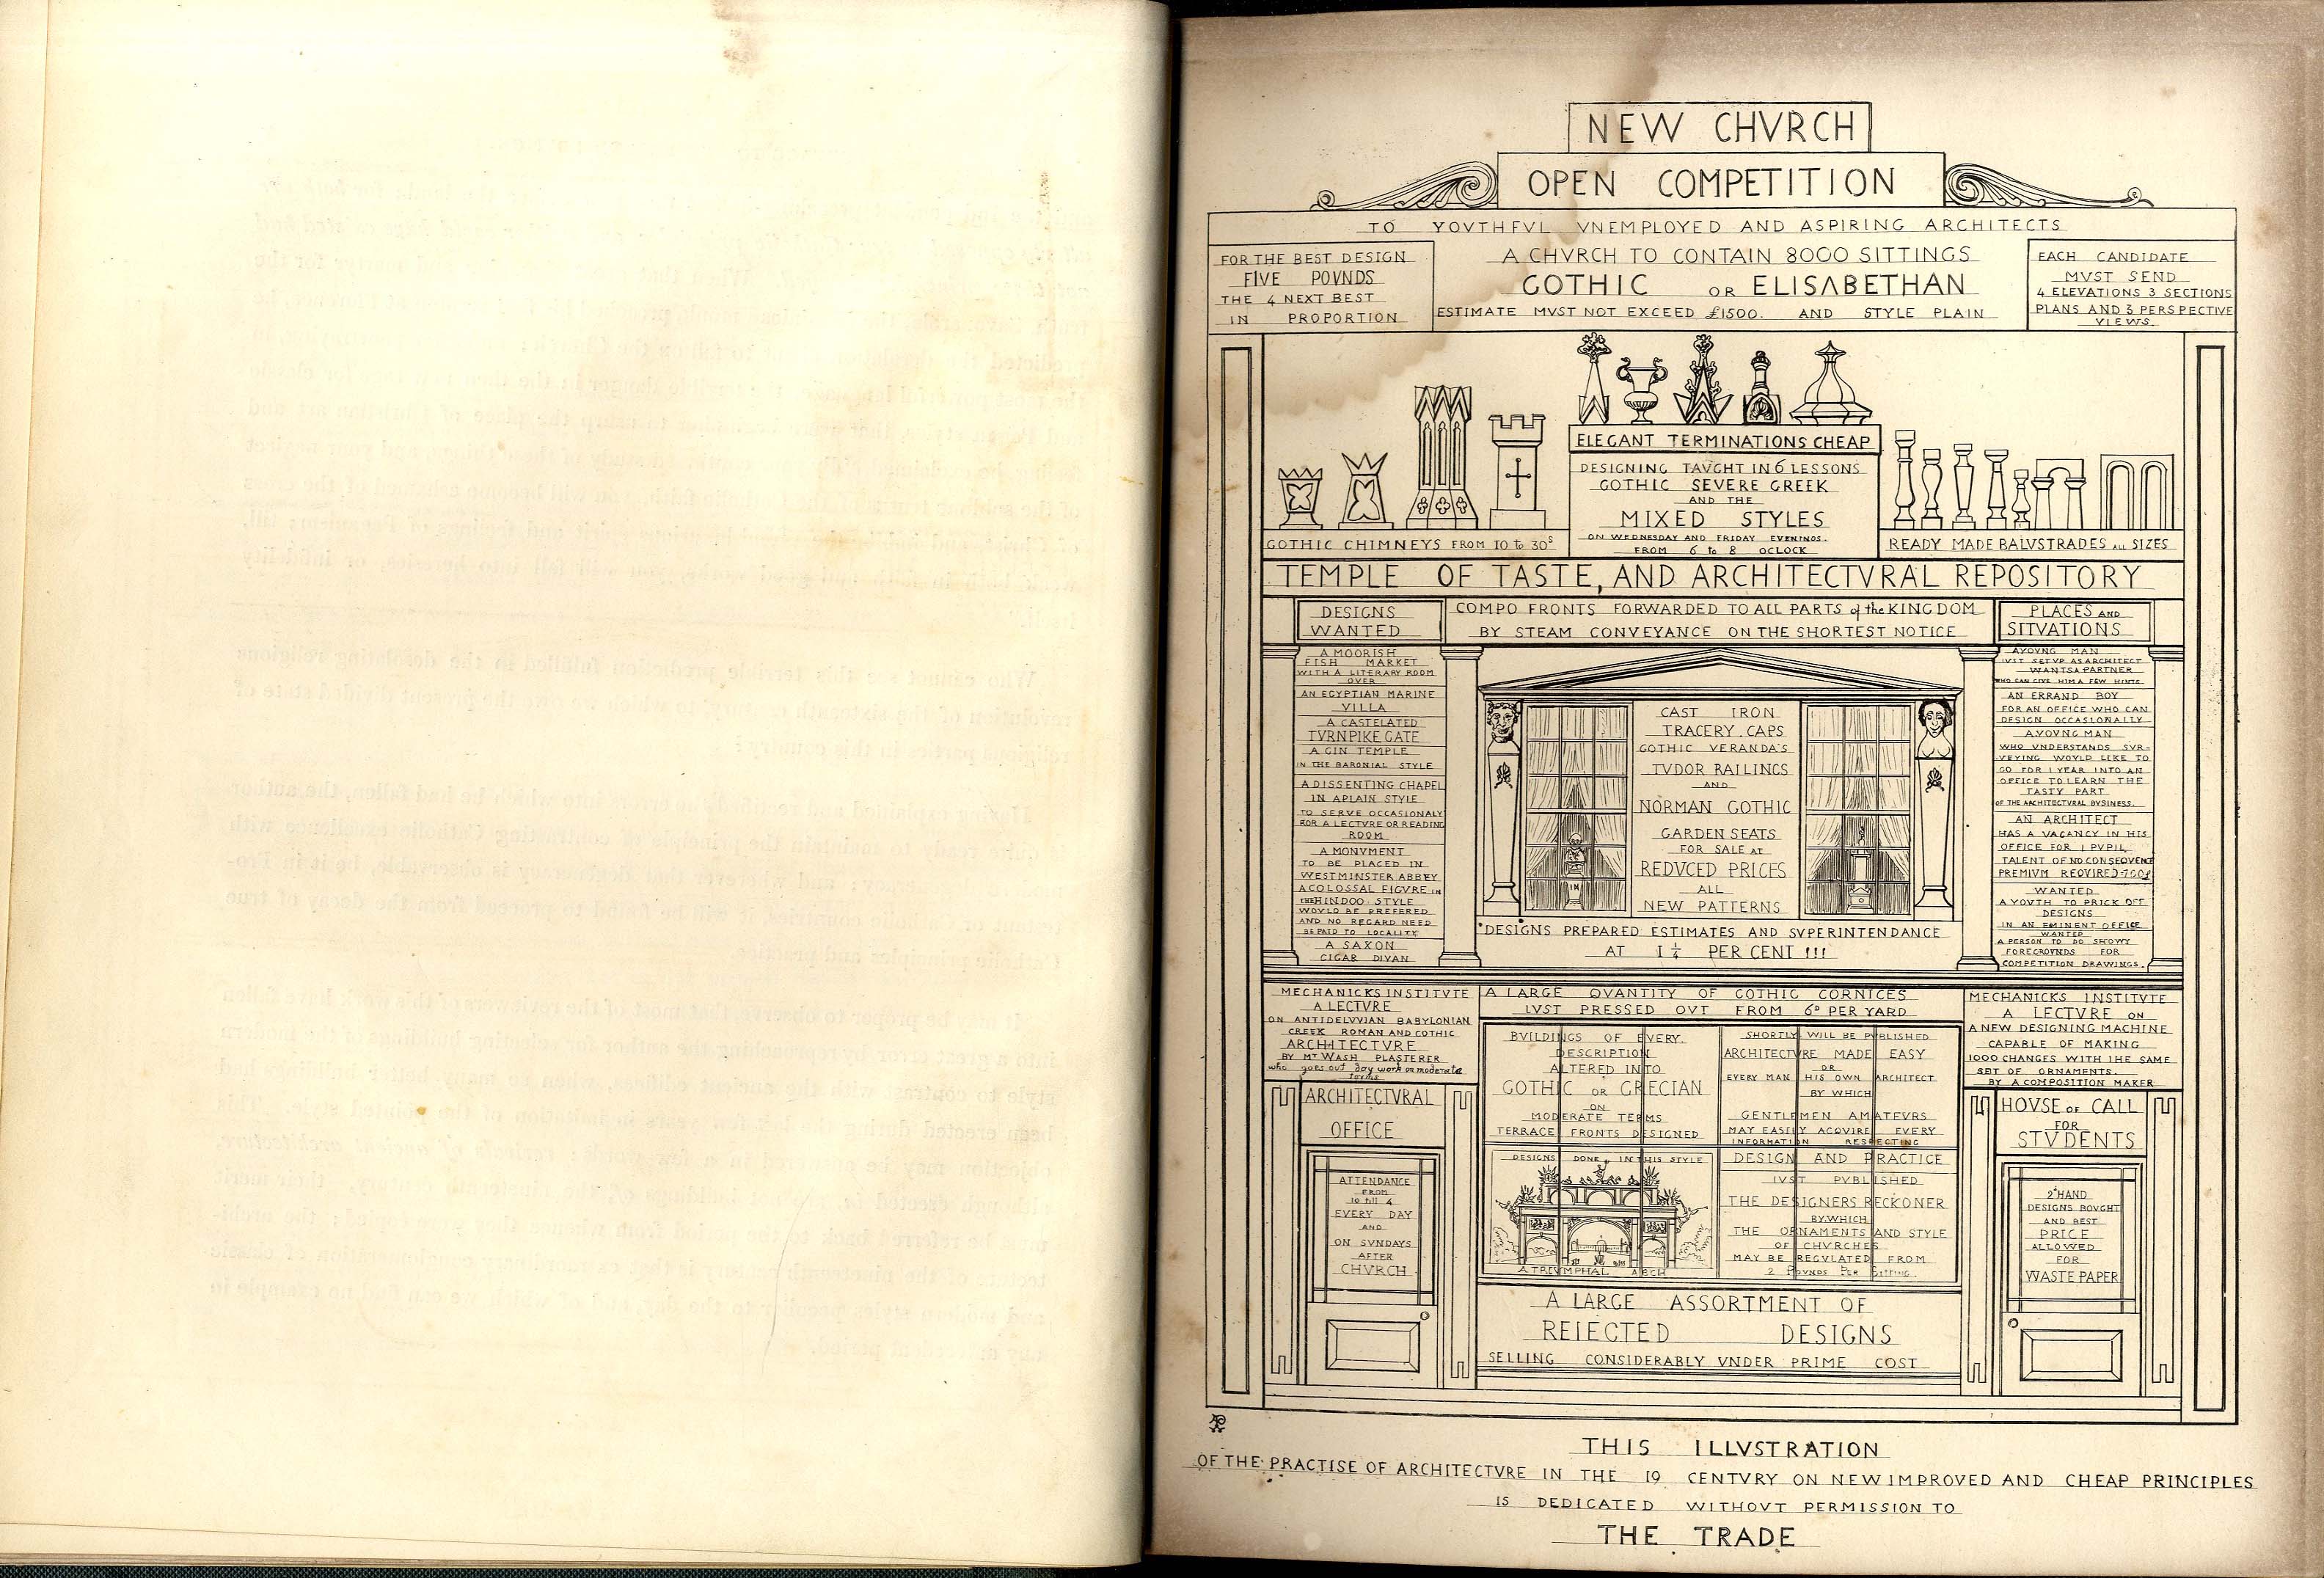 NEW CHVRCH
OPEN COMPETITION
TO YOVTHFVL VNEMPLOYED AND ASPIRING ARCHITECTS
FOR THE BEST DESIGN
FIVE POVNDS
THE 4 NEXT BEST
IN PROPORTION
A CHVRCH TO CONTAIN 8000 SITTINGS
GOTHIC OR ELISABETHAN
ESTIMATE MVST NOT EXCEED £1500. AND STYLE PLAIN
EACH CANDIDATE
MVST SEND
4 ELEVATIONS 3 SECTIONS
PLANS AND 3 PERSPECTIVE
VIEWS.
ELEGANT TERMINATIONS CHEAP
DESIGNING TAVGHT IN 6 LESSONS
GOTHIC SEVERE GREEK
AND THE
MIXED STYLES
ON WEDNESDAY AND FRIDAY EVENINGS.
FROM 6 to 8 OCLOCK
GOTHIC CHIMNEYS FROM 10 to 30s
READY MADE BALVSTRADES ALL SIZES
TEMPLE OF TASTE, AND ARCHITECTVRAL REPOSITORY
DESIGNS
WANTED
COMPO FRONTS FORWARDED TO ALL PARTS of the KINGDOM
BY STEAM CONVEYANCE ON THE SHORTEST NOTICE
PLACES AND
SITVATIONS
A MOORISH
FISH MARKET
WITH A LITERARY ROOM
OVER
AN EGYPTIAN MARINE
VILLA
A CASTELATED
TVRNPIKE GATE
A GIN TEMPLE
IN THE BARONIAL STYLE
A DISSENTING CHAPEL
IN A PLAIN STYLE
TO SERVE OCCASIONALY
FOR A LECTVRE OR READING
ROOM
A MONVMENT
TO BE PLACED IN
WESTMINSTER ABBEY
A COLOSSAL FIGVRE IN
THE HINDOO STYLE
WOVLD BE PREFERED
AND NO REGARD NEED
BE PAID TO LOCALITY
A SAXON
CIGAR DIVAN
CAST IRON
TRACERY CAPS
GOTHIC VERANDA'S
TVDOR RAILINGS
AND
NORMAN GOTHIC
GARDEN SEATS
FOR SALE AT
REDVCED PRICES
ALL
NEW PATTERNS
DESIGNS PREPARED ESTIMATES AND SVPERINTENDANCE
AT 1 1/4 PER CENT !!!
A YOVNG MAN
IVST SET VP AS ARCHITECT
WANTS A PARTNER
WHO CAN GIVE HIM A FEW HINTS
AN ERRAND BOY
FOR AN OFFICE WHO CAN
DESIGN OCCASIONALLY
A YOVNG MAN
WHO VNDERSTANDS SVR=
VEYING WOVLD LIKE TO
GO FOR 1 YEAR INTO AN
OFFICE TO LEARN THE
TASTY PART
OF THE ARCHITECTVRAL BVSINESS.
AN ARCHITECT
HAS A VACANCY IN HIS
OFFICE FOR 1 PVPIL
TALENT OF NO CONSEQVENCE
PREMIVM REQVIRED 700£
WANTED
A YOVTH TO PRICK OFF
DESIGNS
IN AN EMINENT OFFICE
WANTED
A PERSON TO DO SHOWY
FOREGROVNDS FOR
COMPETITION DRAWINGS.
MECHANICKS INSTITVTE
A LECTVRE
ON ANTIDELVVIAN BABYLONIAN
GREEK ROMAN AND GOTHIC
ARCHITECTVRE
BY Mr WASH PLASTERER
who goes out day work on moderate
terms
A LARGE QVANTITY OF GOTHIC CORNICES
IVST PRESSED OVT FROM 6D PER YARD
MECHANICKS INSTITVTE
A LECTVRE ON
A NEW DESIGNING MACHINE
CAPABLE OF MAKING
1000 CHANGES WITH THE SAME
SET OF ORNAMENTS.
BY A COMPOSITION MAKER
BVILDINGS OF EVERY
DESCRIPTION
ALTERED INTO
GOTHIC OR GRECIAN
ON
MODERATE TERMS
TERRACE FRONTS DESIGNED
SHORTLY WILL BE PVBLISHED
ARCHITECTVRE MADE EASY
OR
EVERY MAN HIS OWN ARCHITECT
BY WHICH
GENTLEMEN AMATEVRS
MAY EASILY ACQVIRE EVERY
INFORMATION RESPECTING
DESIGN AND PRACTICE
DESIGNS DONE IN THIS STYLE
A TRIVMPHAL ARCH
IVST PVBLISHED
THE DESIGNERS RECKONER
BY WHICH
THE ORNAMENTS AND STYLE
OF CHVRCHES
MAY BE REGVLATED FROM
2 POVNDS PER SITTING.
ARCHITECTVRAL
OFFICE
ATTENDANCE
FROM
10 till 4
EVERY DAY
AND
ON SVNDAYS
AFTER
CHVRCH
HOVSE OF CALL
FOR
STVDENTS
2d HAND
DESIGNS BOVGHT
AND BEST
PRICE
ALLOWED
FOR
WASTE PAPER
A LARGE ASSORTMENT OF
REIECTED DESIGNS
SELLING CONSIDERABLY VNDER PRIME COST
THIS ILLVSTRATION
OF THE PRACTISE OF ARCHITECTVRE IN THE 19 CENTVRY ON NEW IMPROVED AND CHEAP PRINCIPLES
IS DEDICATED WITHOVT PERMISSION TO
THE TRADE